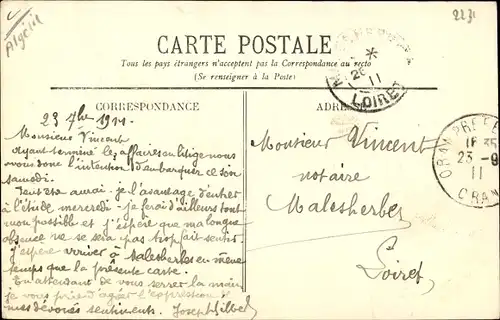 Algérie
2231
CARTE POSTALE
Tous les pays étrangers n'acceptent pas la Correspondance au recto
(Se renseigner à la Poste)
CORRESPONDANCE
ADRESSE
23 7bre 1911
Monsieur Vincent
Ayant terminé les affaires en litige nous
avons donc l'intention d'embarquer ce soir
samedi.
Peut être aurai-je l'avantage d'entrer
à l'étude mercredi - je ferai d'ailleurs tout
mon possible et j'espère que ma longue
absence ne se sera pas trop fait sentir.
J'espère arriver à Malesherbes en même
temps que la présente carte.
En attendant de vous serrer la main
je vous prie d'agréer l'expression
mes dévoués sentiments. Joseph
Monsieur Vincent
notaire
Malesherbes
Loiret
26
11
LOIRET
ORAN
18 35
23 -9
11
ORAN